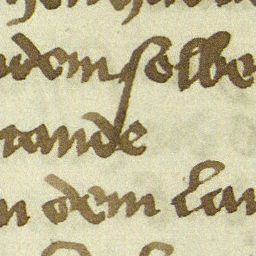 dem selbe
rande
n dem lan